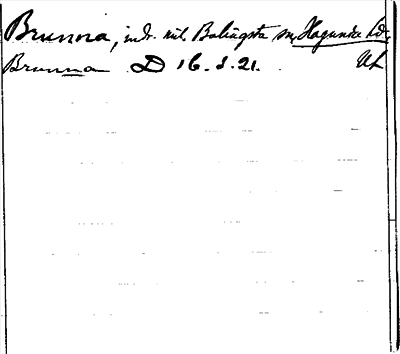 Brunna, indr. nil. Balingsta sn, Hagunda hd,
Brunna D 16. 3. 21. UL